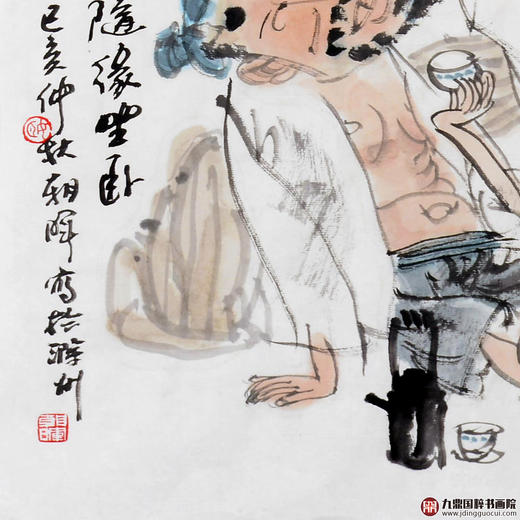 随缘坐卧
己亥仲秋朝晖写於滁州
九鼎国粹书画院
www.jdingguocui.com